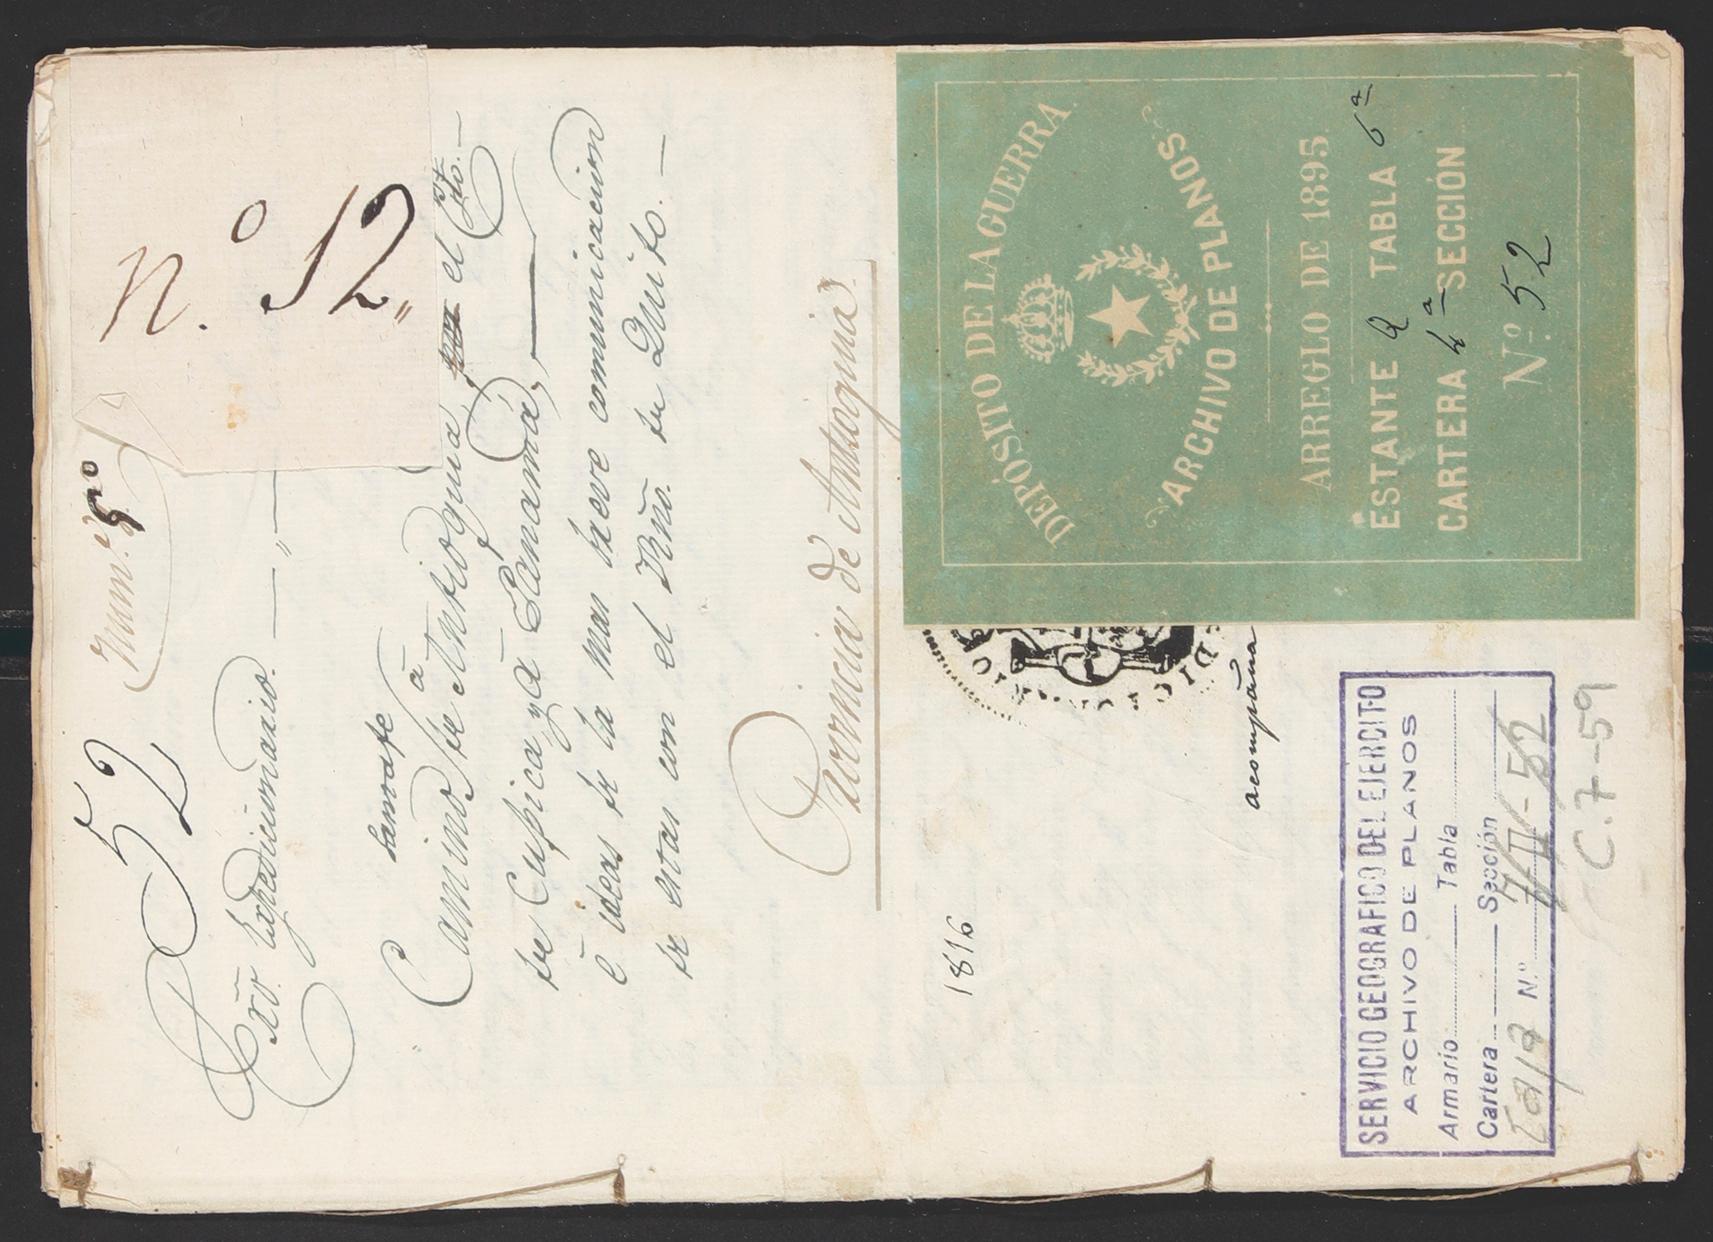 52
Num.º 5º
N.º 12,,
Exo. Expedicionario.
Camino de Antioquia el
de Cupica y á Panamá,
é ideas de la mas breve comunicacion
de estas con el Rño. de Quito.
Provincia de Antioquia.
1816
acompaña
DEPÓSITO DE LA GUERRA
ARCHIVO DE PLANOS
ARREGLO DE 1895
ESTANTE Q TABLA 6ª
CARTERA 4ª SECCIÓN
Nº 52
SERVICIO GEOGRAFICO DEL EJERCITO
ARCHIVO DE PLANOS
Armario Tabla
Cartera Sección
N.º 52
C.7-59